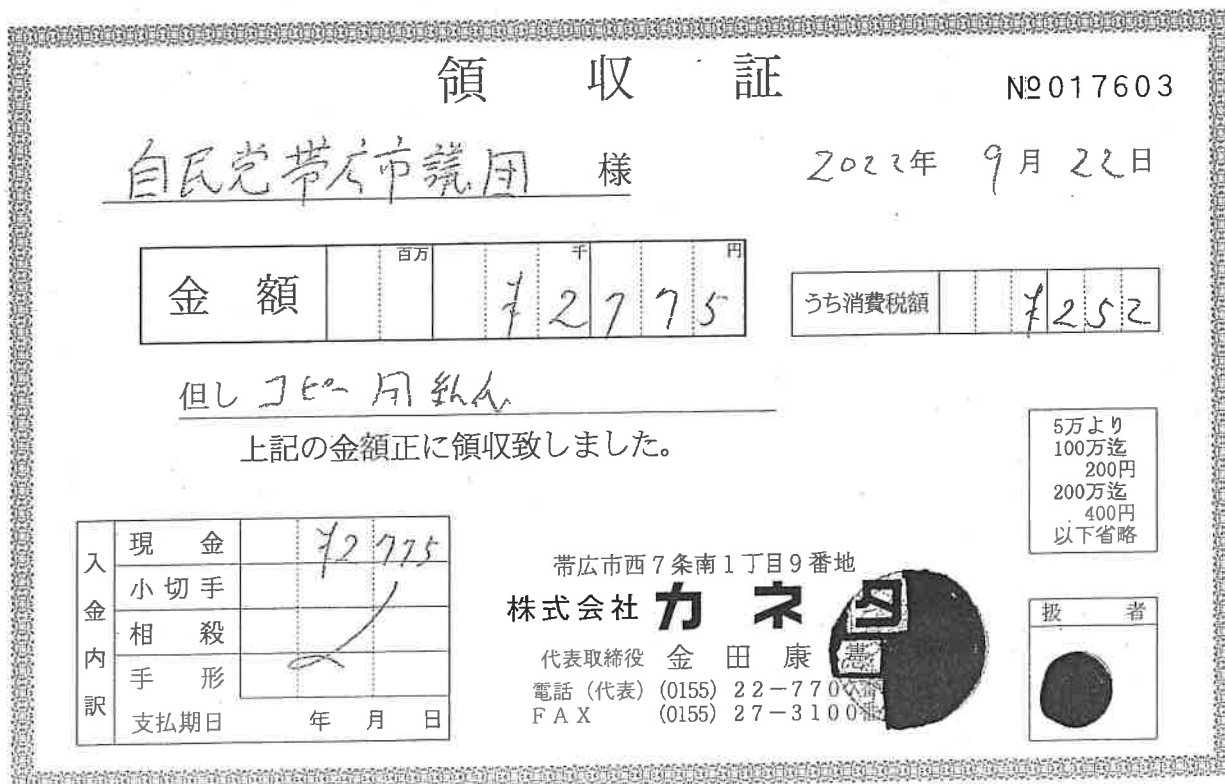 領収証
№017603
自民党帯広市議団 様
2022年 9月 22日
金額 百万 千 円 ¥2775
うち消費税額 ¥252
但し コピー用紙代
上記の金額正に領収致しました。
5万より
100万迄
200円
200万迄
400円
以下省略
入金内訳
現金 ¥2775
小切手
相殺
手形
支払期日 年 月 日
帯広市西7条南1丁目9番地
株式会社 カネタ
代表取締役 金田康憲
電話(代表) (0155) 22-770
FAX (0155) 27-3100番
扱者